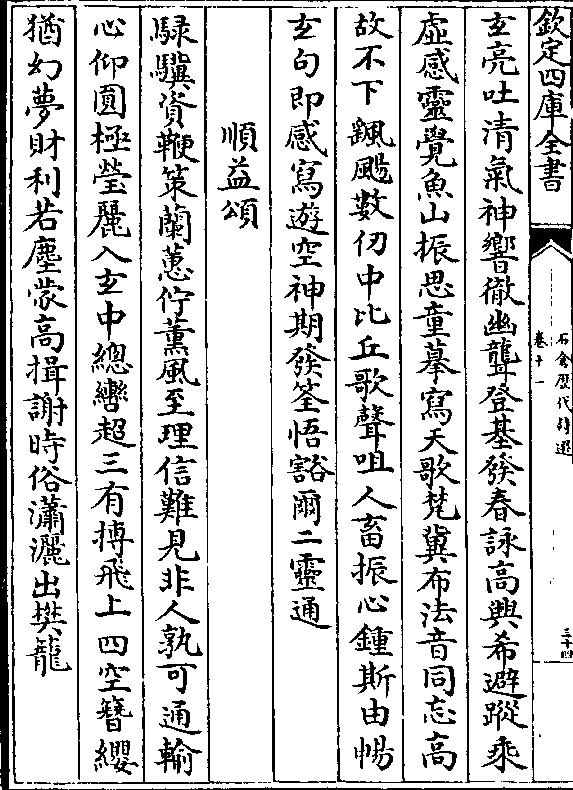 欽定四庫全書
石倉歷代詩選
卷十一
三十四
玄亮吐清氣神響徹幽聾登基發春詠高興希避蹤乘
虛感靈覺魚山振思童摹寫天歌梵冀布法音同忘高
故不下飄飈數仞中比丘歌聲咀人畜振心鍾斯由暢
玄句即感寫遊空神期發筌悟豁爾二靈通
順益頌
騄驥資鞭策蘭蕙佇薰風至理信難見非人孰可通輸
心仰圓極瑩麗入玄中總轡超三有摶飛上四空簪纓
猶幻夢財利若塵蒙高揖謝時俗瀟灑出樊籠